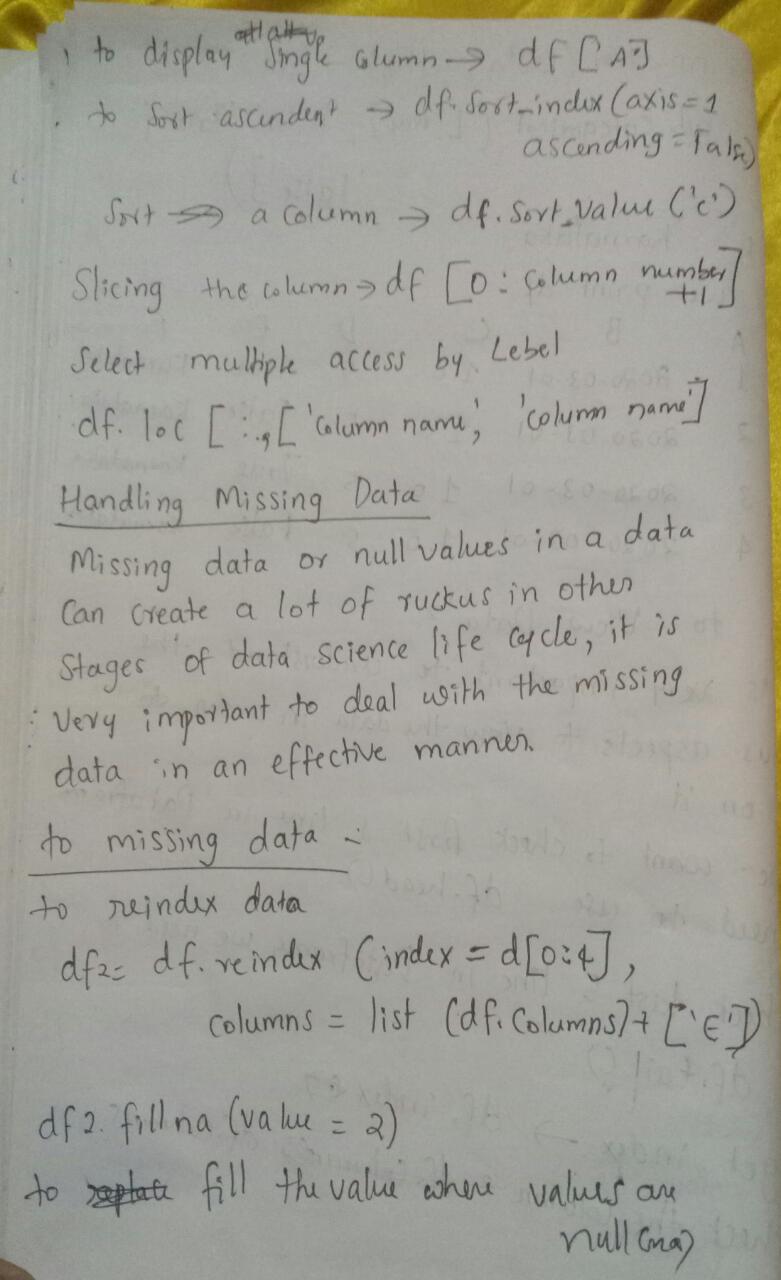 to display single column → df['A']
to sort ascendent → df.sort_index(axis=1
ascending = False)
Sort a column → df.sort_value('c')
Slicing the column → df [0: column number
+1]
Select multiple access by Lebel
df. loc [:,['column name', 'column name']
Handling Missing Data
Missing data or null values in a data
Can create a lot of ruckus in other
stages of data science life cycle, it is
very important to deal with the missing
data in an effective manner.
to missing data :-
to reindex data
df2= df.reindex (index = d[0:4],
columns = list (df.columns)+ ['E'])
df2. fillna (value = 2)
to fill the value where values are
null (na)